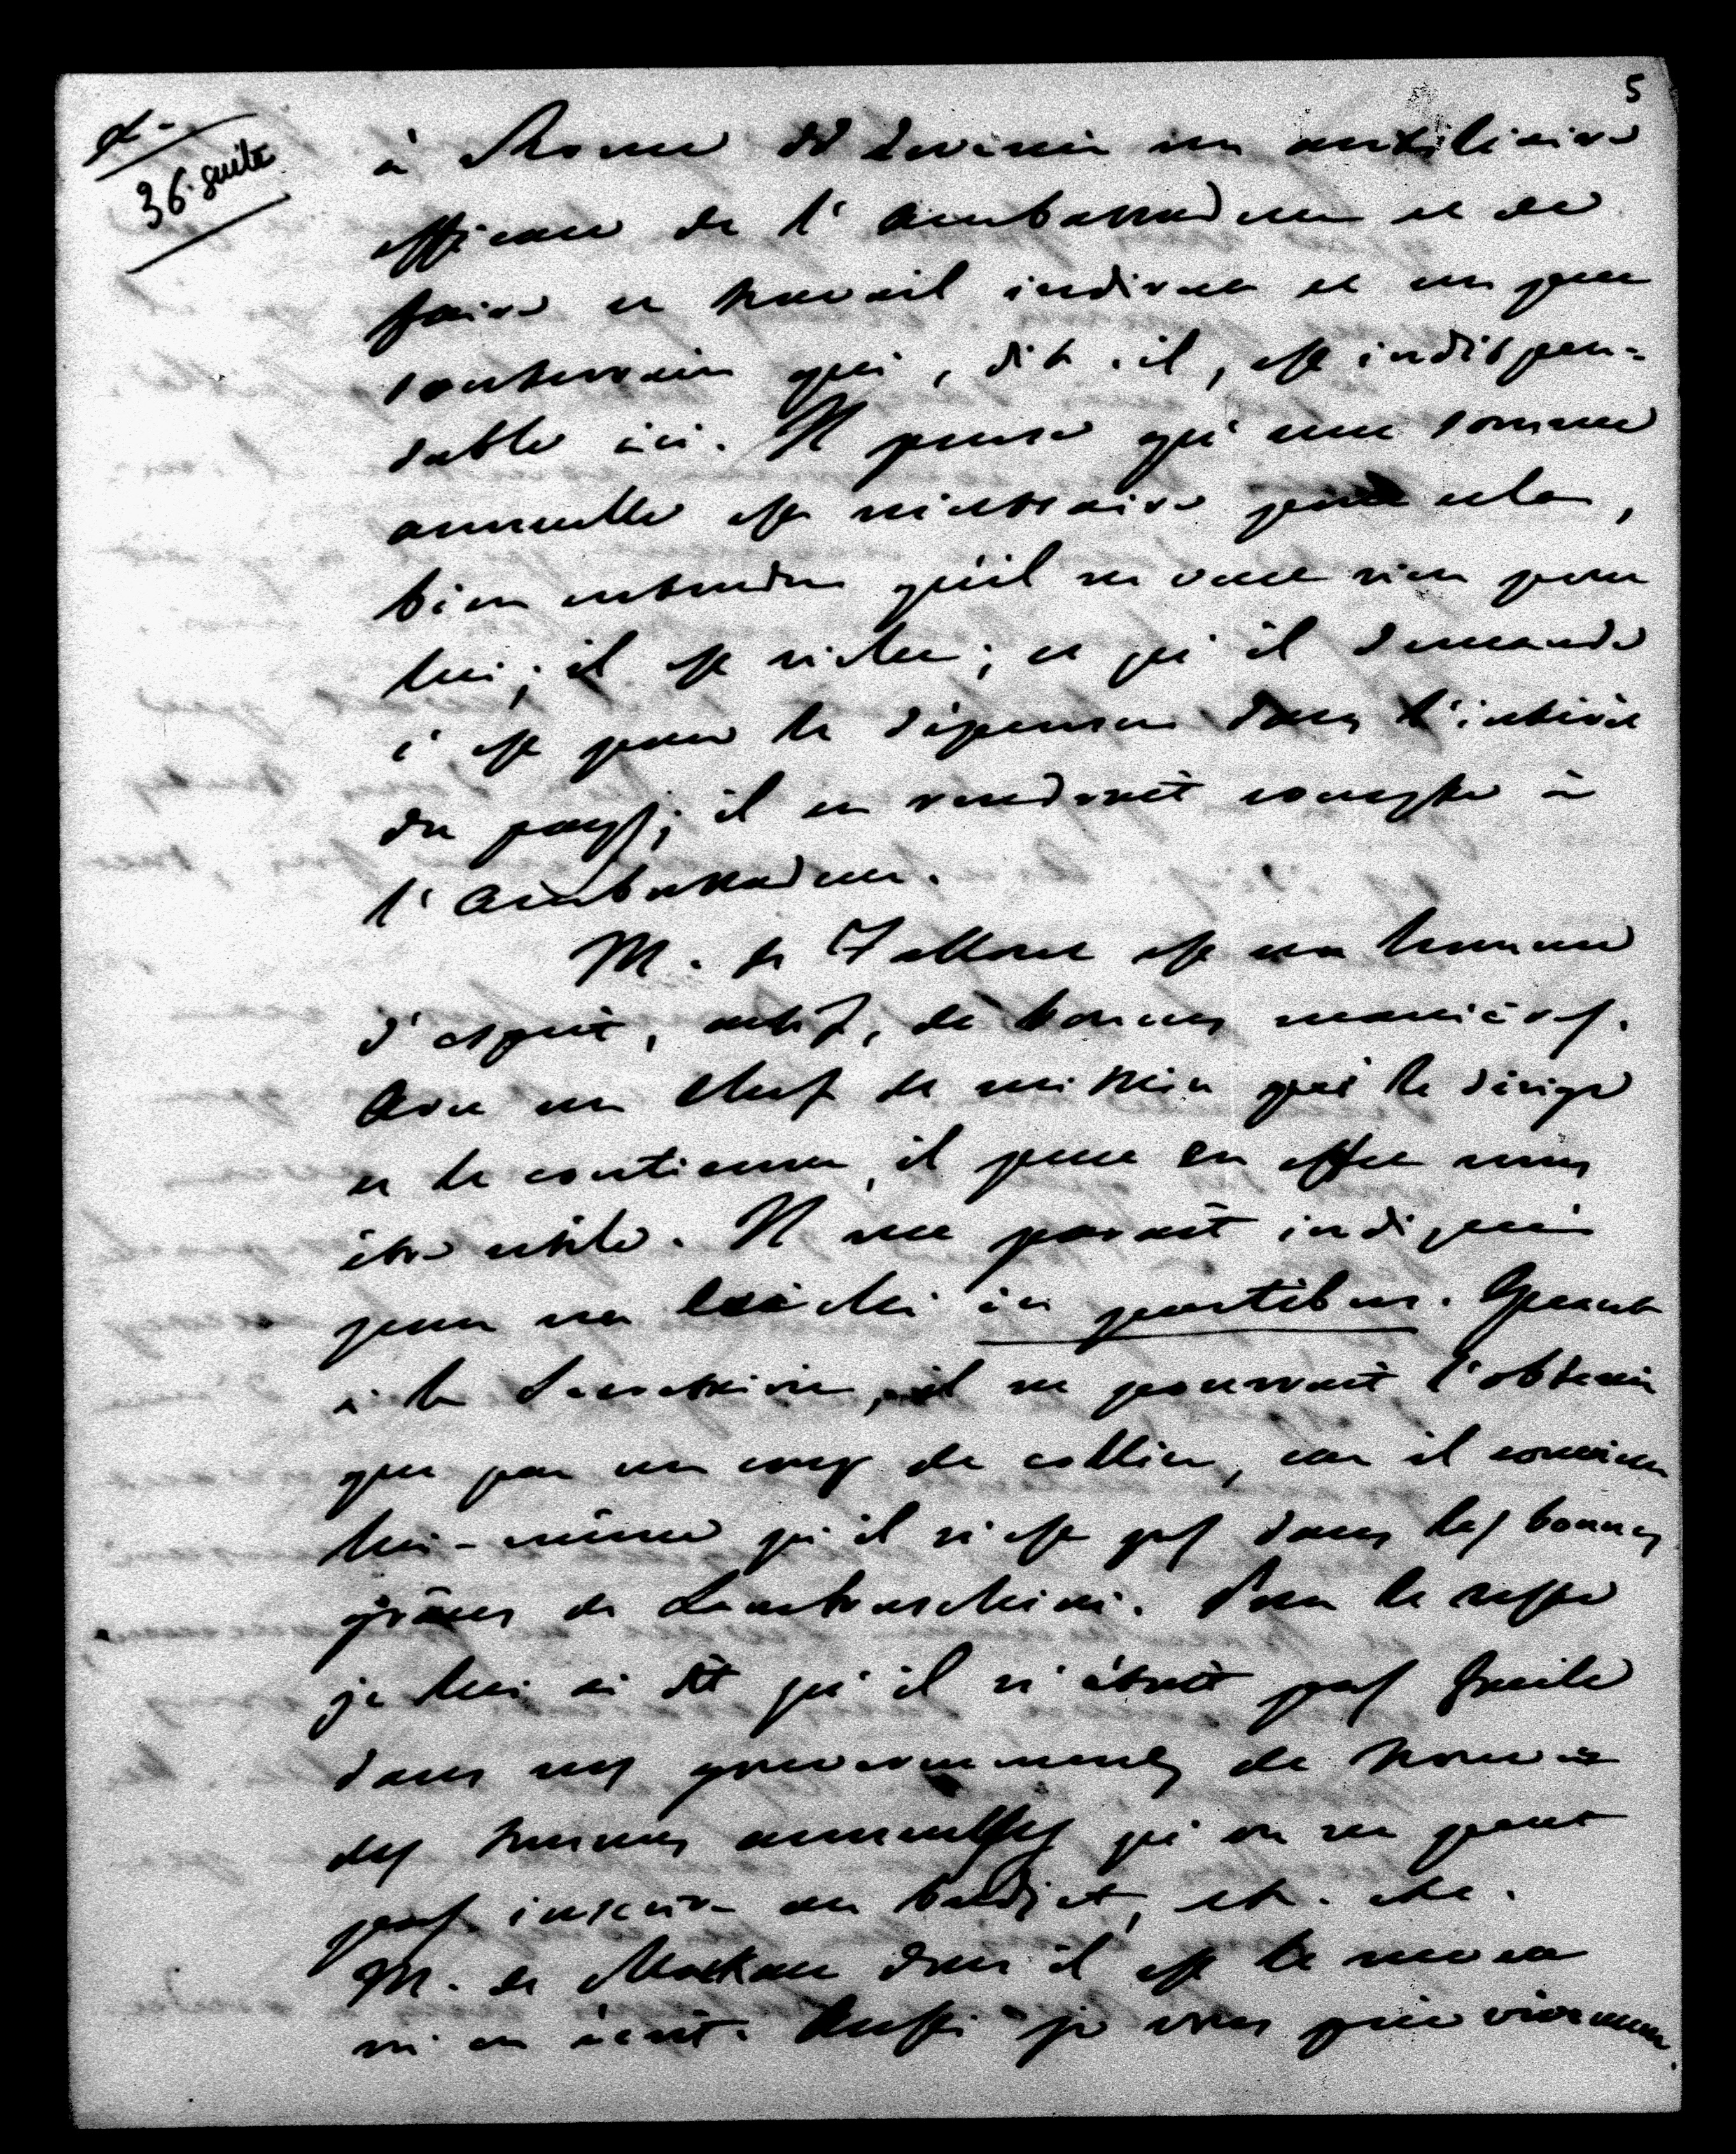 5
36. suite
à Rome et devenir un auxiliaire
efficace de l'Ambassadeur et de
faire ce travail indirect et un peu
souterrain qui, dit-il, est indispen-
sable ici. Il pense qu'une somme
annuelle est nécessaire pour cela,
bien entendu qu'il ne veut rien pour
lui; il est riche; ce qu'il demande
c'est pour le dépenser dans l'intérêt
du pays; il en rendrait compte à
l'Ambassadeur.
M. de Falloux est un homme
d'esprit, actif, de bonnes manières.
Avec un chef de mission qui le dirige
et le contienne, il peut en effet nous
être utile. Il me paraît indiqué
pour un évêché in partibus. Quant
à la Secrétairerie, il ne pourrait l'obtenir
que par un coup de collier, car il convient
lui-même qu'il n'est pas dans les bonnes
grâces de Lambruschini. Pour le reste
je lui ai dit qu'il n'était pas facile
dans nos gouvernements de trouver
des sommes annuelles qu'on ne peut
pas inscrire au budget, etc. etc.
M. de Mackau dont il est le neveu
m'en écrit. Aussi je vous prie vivement